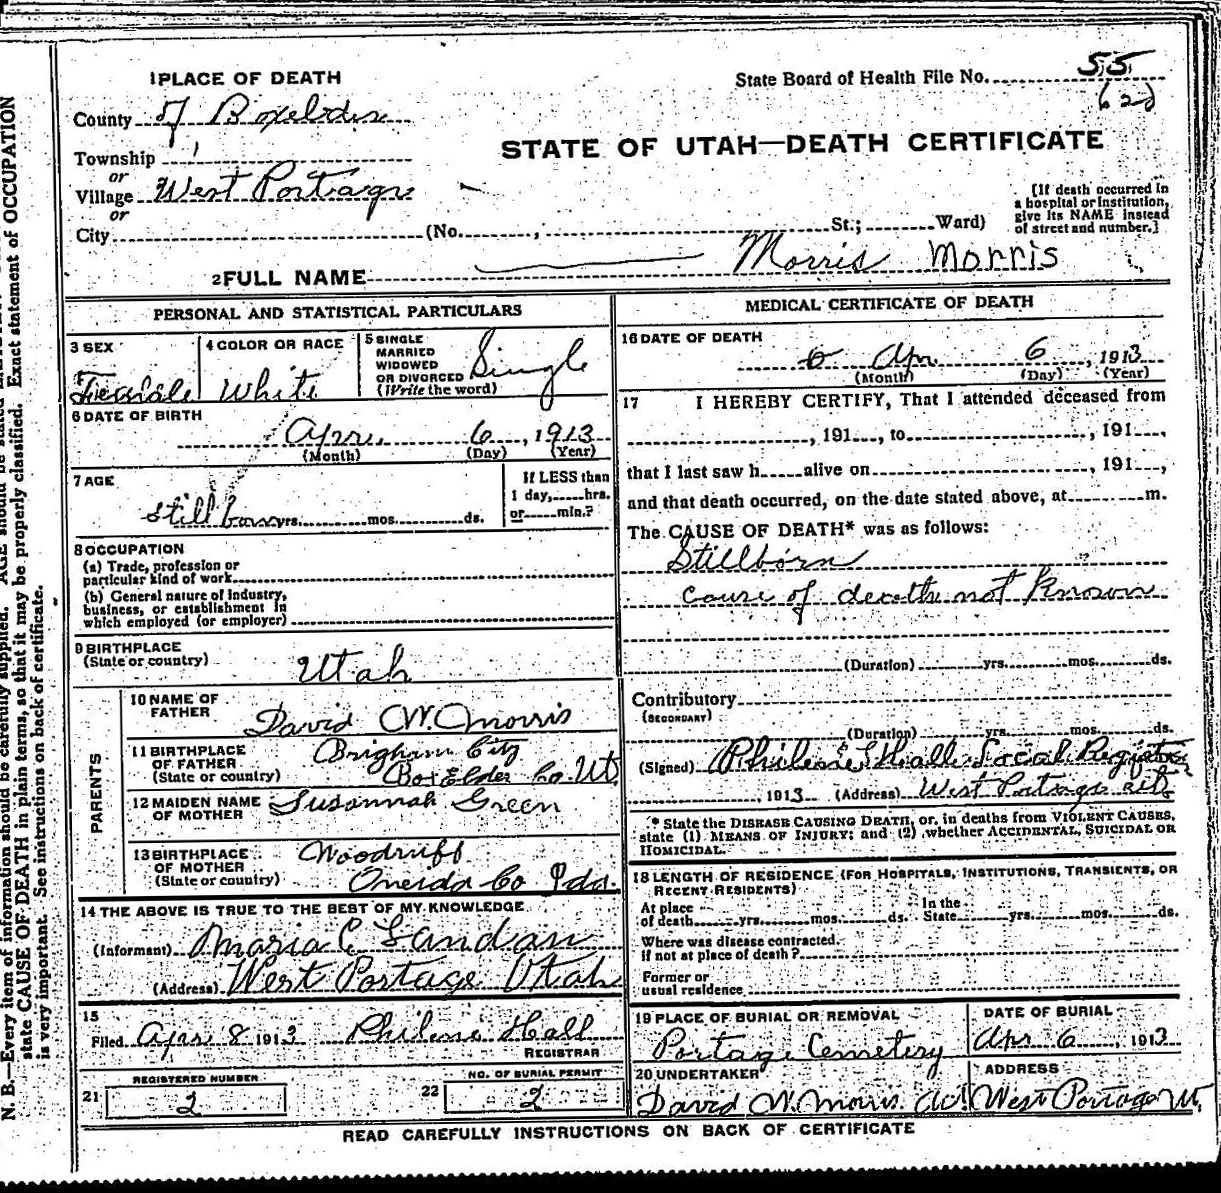 1 PLACE OF DEATH
State Board of Health File No. 55
County of Boxelder
(62)
STATE OF UTAH—DEATH CERTIFICATE
Township
or
Village West Portage
or
City (No. , St.; Ward)
[If death occurred in
a hospital or institution,
give its NAME instead
of street and number.]
2 FULL NAME Morris Morris
PERSONAL AND STATISTICAL PARTICULARS
3 SEX Female
4 COLOR OR RACE White
5 SINGLE
MARRIED
WIDOWED
OR DIVORCED
(Write the word) Single
6 DATE OF BIRTH
Apr. 6, 1913
(Month) (Day) (Year)
7 AGE
Stillborn yrs. mos. ds.
If LESS than
1 day, hrs.
or min.?
8 OCCUPATION
(a) Trade, profession or
particular kind of work
(b) General nature of industry,
business, or establishment in
which employed (or employer)
9 BIRTHPLACE
(State or country) Utah
PARENTS
10 NAME OF
FATHER David W. Morris
11 BIRTHPLACE
OF FATHER
(State or country) Brigham City
Box Elder Co. Ut
12 MAIDEN NAME
OF MOTHER Susannah Green
13 BIRTHPLACE
OF MOTHER
(State or country) Woodruff
Oneida Co Ida.
14 THE ABOVE IS TRUE TO THE BEST OF MY KNOWLEDGE
(Informant) Maria C
(Address) West Portage Utah
15
Filed Apr. 8 1913 Philene Hall
REGISTRAR
21 REGISTERED NUMBER
2
22 NO. OF BURIAL PERMIT
2
MEDICAL CERTIFICATE OF DEATH
16 DATE OF DEATH
Apr. 6, 1913
(Month) (Day) (Year)
17 I HEREBY CERTIFY, That I attended deceased from
, 191 , to , 191 ,
that I last saw h alive on , 191 ,
and that death occurred, on the date stated above, at m.
The CAUSE OF DEATH* was as follows:
Stillborn
cause of death not Known
(Duration) yrs. mos. ds.
Contributory
(SECONDARY)
(Duration) yrs. mos. ds.
(Signed) Philene Hall Local Registrar
, 1913 (Address) West Portage
* State the DISEASE CAUSING DEATH, or, in deaths from VIOLENT CAUSES,
state (1) MEANS OF INJURY; and (2) whether ACCIDENTAL, SUICIDAL OR
HOMICIDAL.
18 LENGTH OF RESIDENCE (FOR HOSPITALS, INSTITUTIONS, TRANSIENTS, OR
RECENT RESIDENTS)
At place
of death yrs. mos. ds.
In the
State yrs. mos. ds.
Where was disease contracted.
if not at place of death?
Former or
usual residence
19 PLACE OF BURIAL OR REMOVAL
Portage Cemetery
DATE OF BURIAL
Apr 6, 1913
20 UNDERTAKER
David W. Morris
ADDRESS
West Portage Ut.
READ CAREFULLY INSTRUCTIONS ON BACK OF CERTIFICATE
N. B.—Every item of information should be carefully supplied. AGE should be stated
state CAUSE OF DEATH in plain terms, so that it may be properly classified. Exact statement of OCCUPATION
is very important. See instructions on back of certificate.